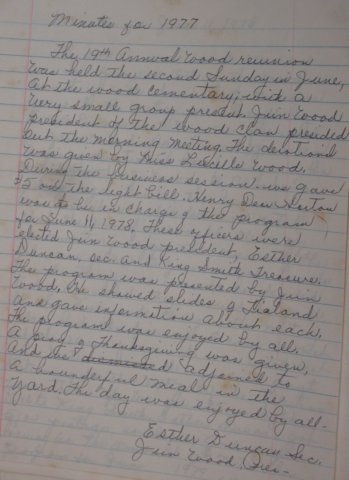 Minutes for 1977
The 19th Annual Wood reunion
was held the second Sunday in June,
At the wood cementary, with a
Very small group present. Jim Wood
president of the wood Clan presided
Out the morning Meeting. The devotional
was given by Miss Lucille Wood.
During the business session we gave
$5 on the light bill. Henry Dew
was to be in charge of the program
for June 11, 1978. These officers were
elected Jim Wood president, Esther
Duncan, sec. and King Smith Treasure.
The program was presented by Jim
Wood. He showed slides of
and gave information about each.
The program was enjoyed by all.
A pray of Thanksgiving was given,
And we adjoined to
A bounderful meal in the
yard. The day was enjoyed by all-
Esther Duncan Sec.
Jim Wood, Pres-